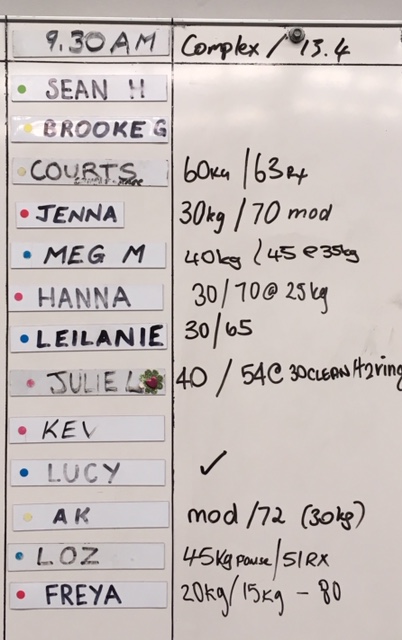 9.30 AM Complex / 13.4
SEAN H
BROOKE G
COURTS 60kg / 63 Rx
JENNA 30kg / 70 mod
MEG M 40kg / 45 @ 35kg
HANNA 30 / 70 @ 25kg
LEILANIE 30 / 65
JULIE L 40 / 54 @ 30 CLEAN
KEV
LUCY ✓
AK mod / 72 (30kg)
LOZ 45kg pause / 51 RX
FREYA 20kg / 15kg - 80